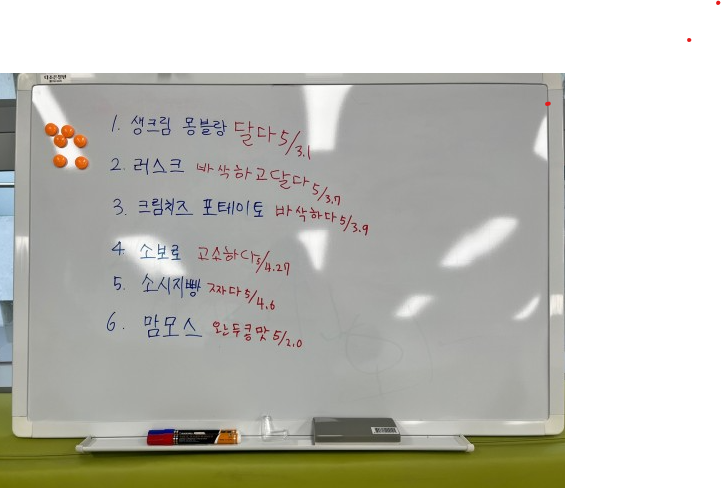 1. 생크림 몽블랑 달다 5/3.1
2. 러스크 바삭하고달다 5/3.7
3. 크림치즈 포테이토 바삭하다 5/3.9
4. 소보로 고소하다 5/4.27
5. 소시지빵 짜다 5/4.6
6. 맘모스 완두콩맛 5/2.0